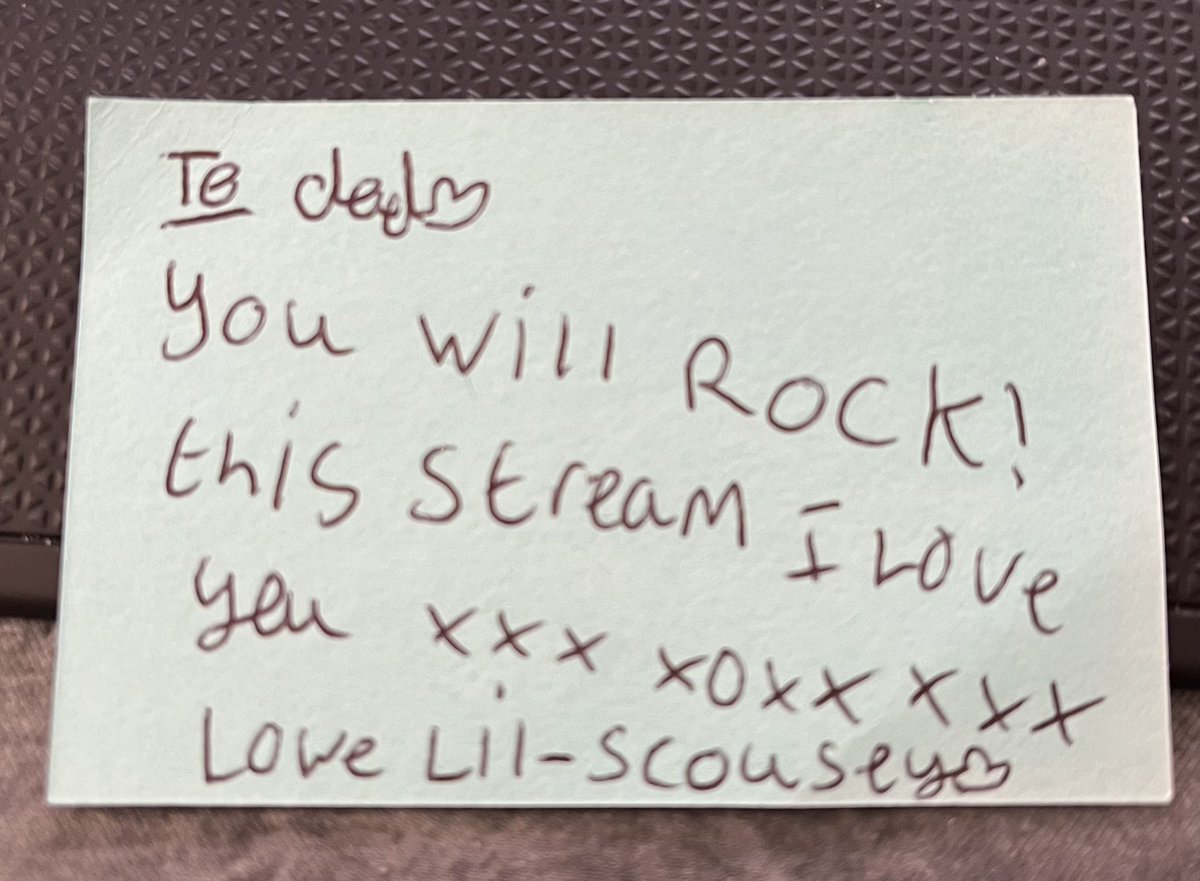 To dad♡
You will ROCK!
this stream I Love
you xxx xoxx xxx
Love Lil-Scousey♡